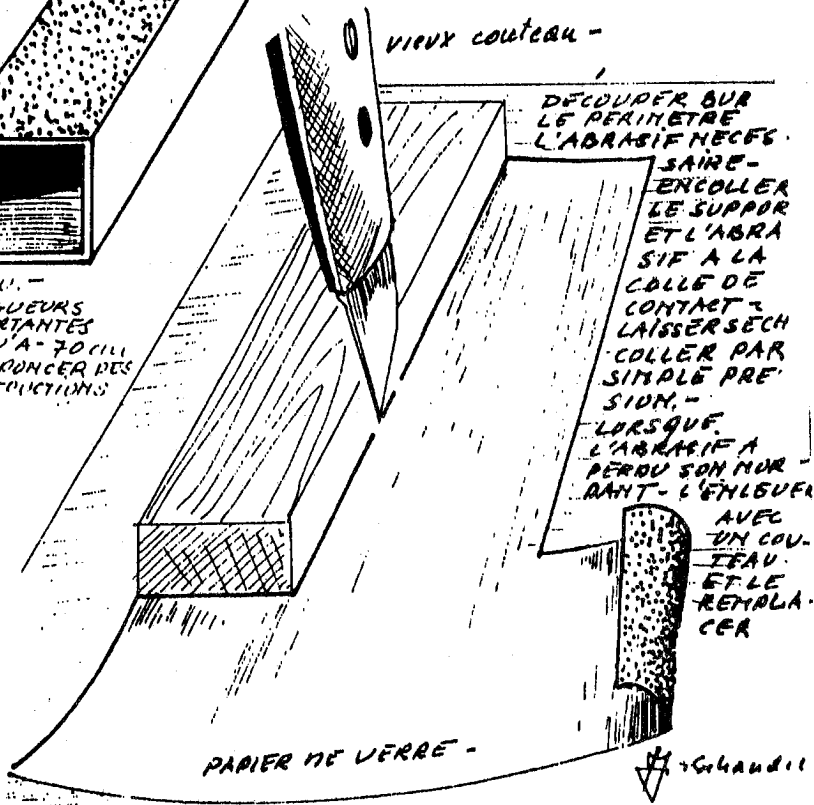 VIEUX COUTEAU -
DÉCOUPER SUR
LE PERIMETRE
L'ABRASIF NECES-
SAIRE -
ENCOLLER
LE SUPPOR
ET L'ABRA
SIF A LA
COLLE DE
CONTACT -
LAISSER SECH
COLLER PAR
SIMPLE PRE'
SION. -
LORSQUE
L'ABRASIF A
PERDU SON MOR -
DANT - L'ENLEVER
AVEC
UN COU-
TEAU
ET LE
REMPLA-
CER
U. -
GUEURS
RTANTES
U'A - 70 cm
PONCER DES
RUCTIONS
PAPIER DE VERRE -